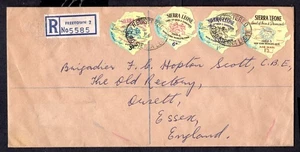 FREETOWN 2
R
No 5585
SIERRA LEONE
SIERRA LEONE
Brigadier F. G. Hopton Scott, C.B.E,
The Old Rectory,
Orsett,
Essex,
England.